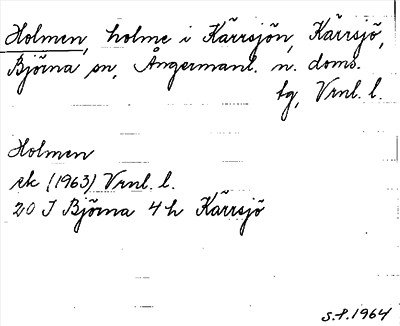 Holmen, holme i Kärrsjön, Kärrsjö,
Björna sn, Ångermanl. n. doms.
tg, Vrnl. l.
Holmen
ek (1963) Vrnl. l.
20 J Björna 4h Kärrsjö
S.P. 1964